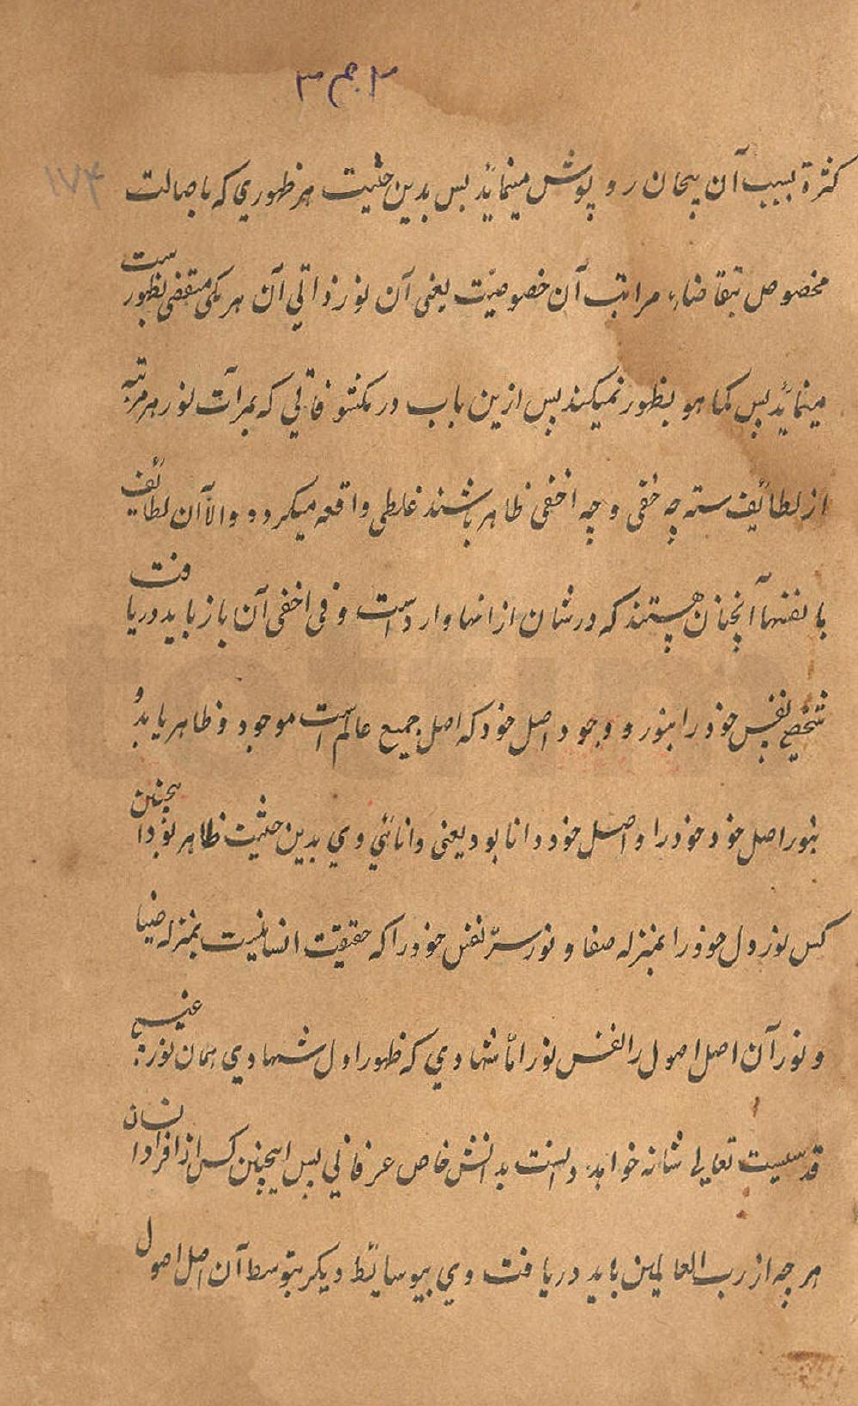 ۱۷۴
کثرة بسبب آن پیجان رو پوش مینماید بس بدین حیثیت هر ظهوري که باصالت
مخصوص بتقاضاء مراتب آن خصوصیت یعنی آن نور ذاتی آن هر یکی مقتضی بظهور ست
مینماید پس کما هو بظهور نمیکند پس ازین باب در مکشوفاتی که بمرآت نور هر مرتبه
از لطائف سته چه خفی و چه اخفی ظاهر باشند غلطی واقعه میکردد والا آن لطائف
بانفسها آنچنان هستند که در شان ازانها وارد است و فی اخفی آن باز باید دریافت
شخصے نفس خود را بنور و وجود اصل خود که اصل جمیع عالم است موجود و ظاهر یابد و
بنور اصل خود خود را و اصل خود دانا بود یعنی دانائي وي بدین حیثیت ظاهر بود همچنین
کس نور دل خود را بمنزله صفا و نور سرّ نفس خود را که حقیقت انسانیت بمنزله ضیا
و نور آن اصل اصول را نفس نور اما شهادي که ظهور اول شهادي همان نور غیب
قدسیست تعالی شانه خواهد دانست بدانش خاص عرفانی بس اینچنین کس از افراد انسان
هر چه از رب العالمین باید دریافت وي بیوسائط دیکر بتوسط آن اصل اصول